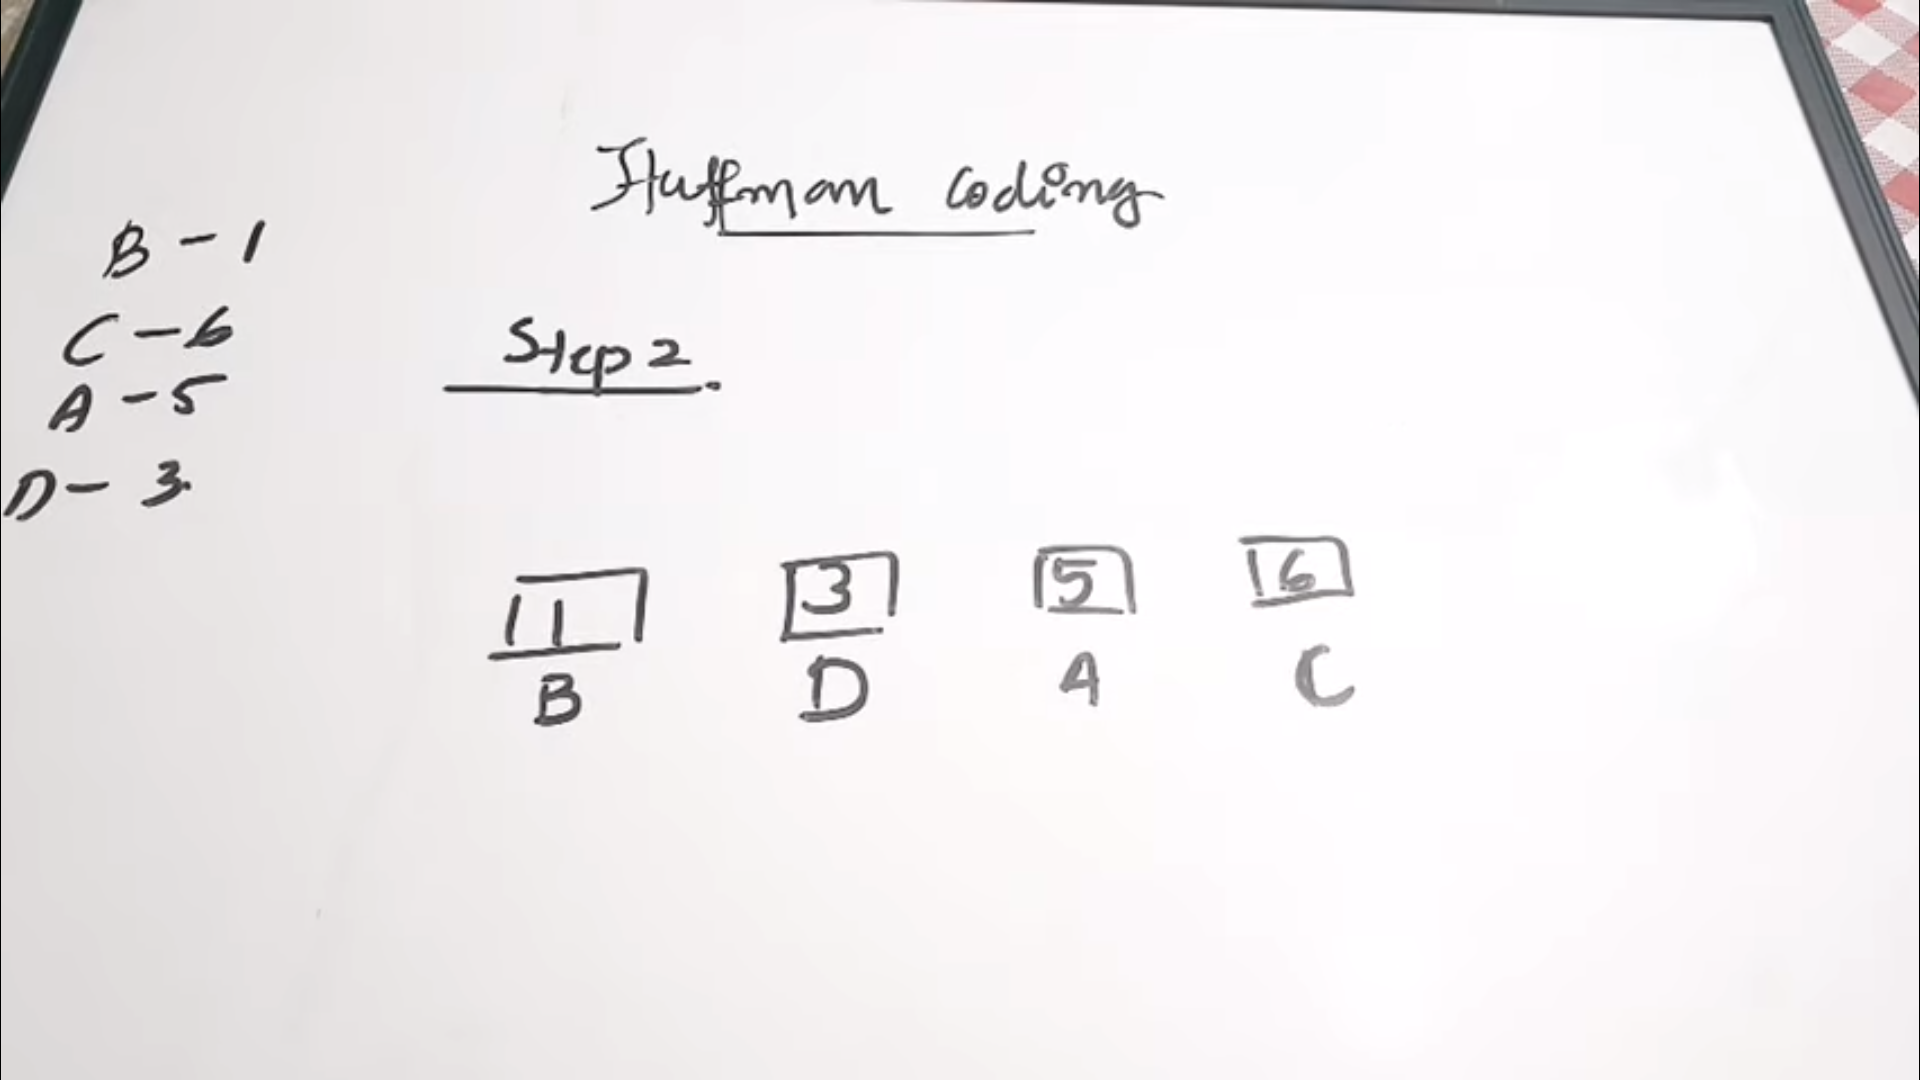 Huffman coding
B - 1
C - 6
A - 5
D - 3.
Step 2.
1 3 5 6
B D A C